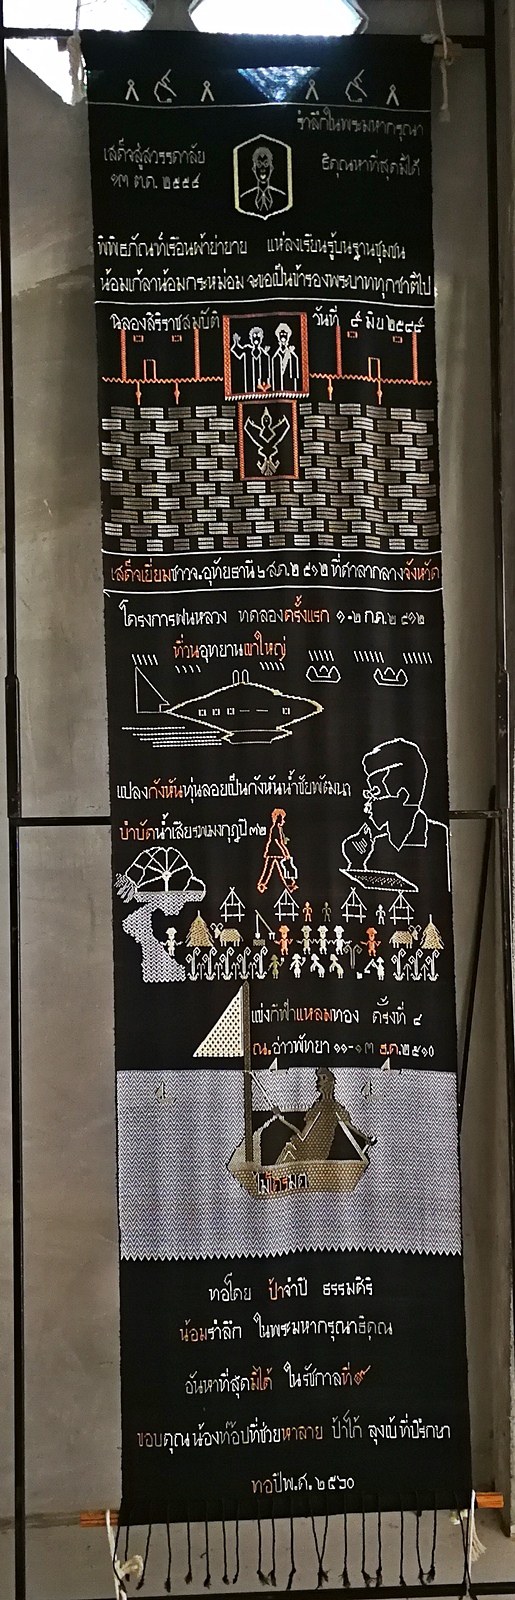 รำลึกในพระมหากรุณา
เสด็จสู่สวรรคาลัย
ธิคุณหาที่สุดมิได้
๑๓ ต.ค. ๒๕๕๙
พิพิธภัณฑ์เรือนผ้าย่ายาย แหล่งเรียนรู้บนฐานชุมชน
น้อมเกล้าน้อมกระหม่อม จะขอเป็นข้ารองพระบาททุกชาติไป
ฉลองสิริราชสมบัติ วันที่ ๙ มิย ๒๕๔๙
เสด็จเยี่ยมชาวจ.อุทัยธานี ๖ ส.ค. ๒๕๑๒ ที่ศาลากลางจังหวัด
โครงการฝนหลวง ทดลองครั้งแรก ๑-๒ ก.ค. ๒๕๑๒
ที่วนอุทยานเขาใหญ่
แปลงกังหันทุ่นลอยเป็นกังหันน้ำชัยพัฒนา
บำบัดน้ำเสีย ปี ๓๒
แข่งกีฬาแหลมทอง ครั้งที่ ๔
ณ.อ่าวพัทยา ๑๑-๑๓ ธ.ค. ๒๕๑๐
ไมโครมด
ทอโดย ป้าจำปี ธรรมศิริ
น้อมรำลึก ในพระมหากรุณาธิคุณ
อันหาที่สุดมิได้ ในรัชกาลที่ ๙
ขอบคุณน้องท๊อปที่ช่วยหาลาย ป้าโก้ ลุงเบ้ ที่ปรึกษา
ทอปีพ.ศ. ๒๕๖๐